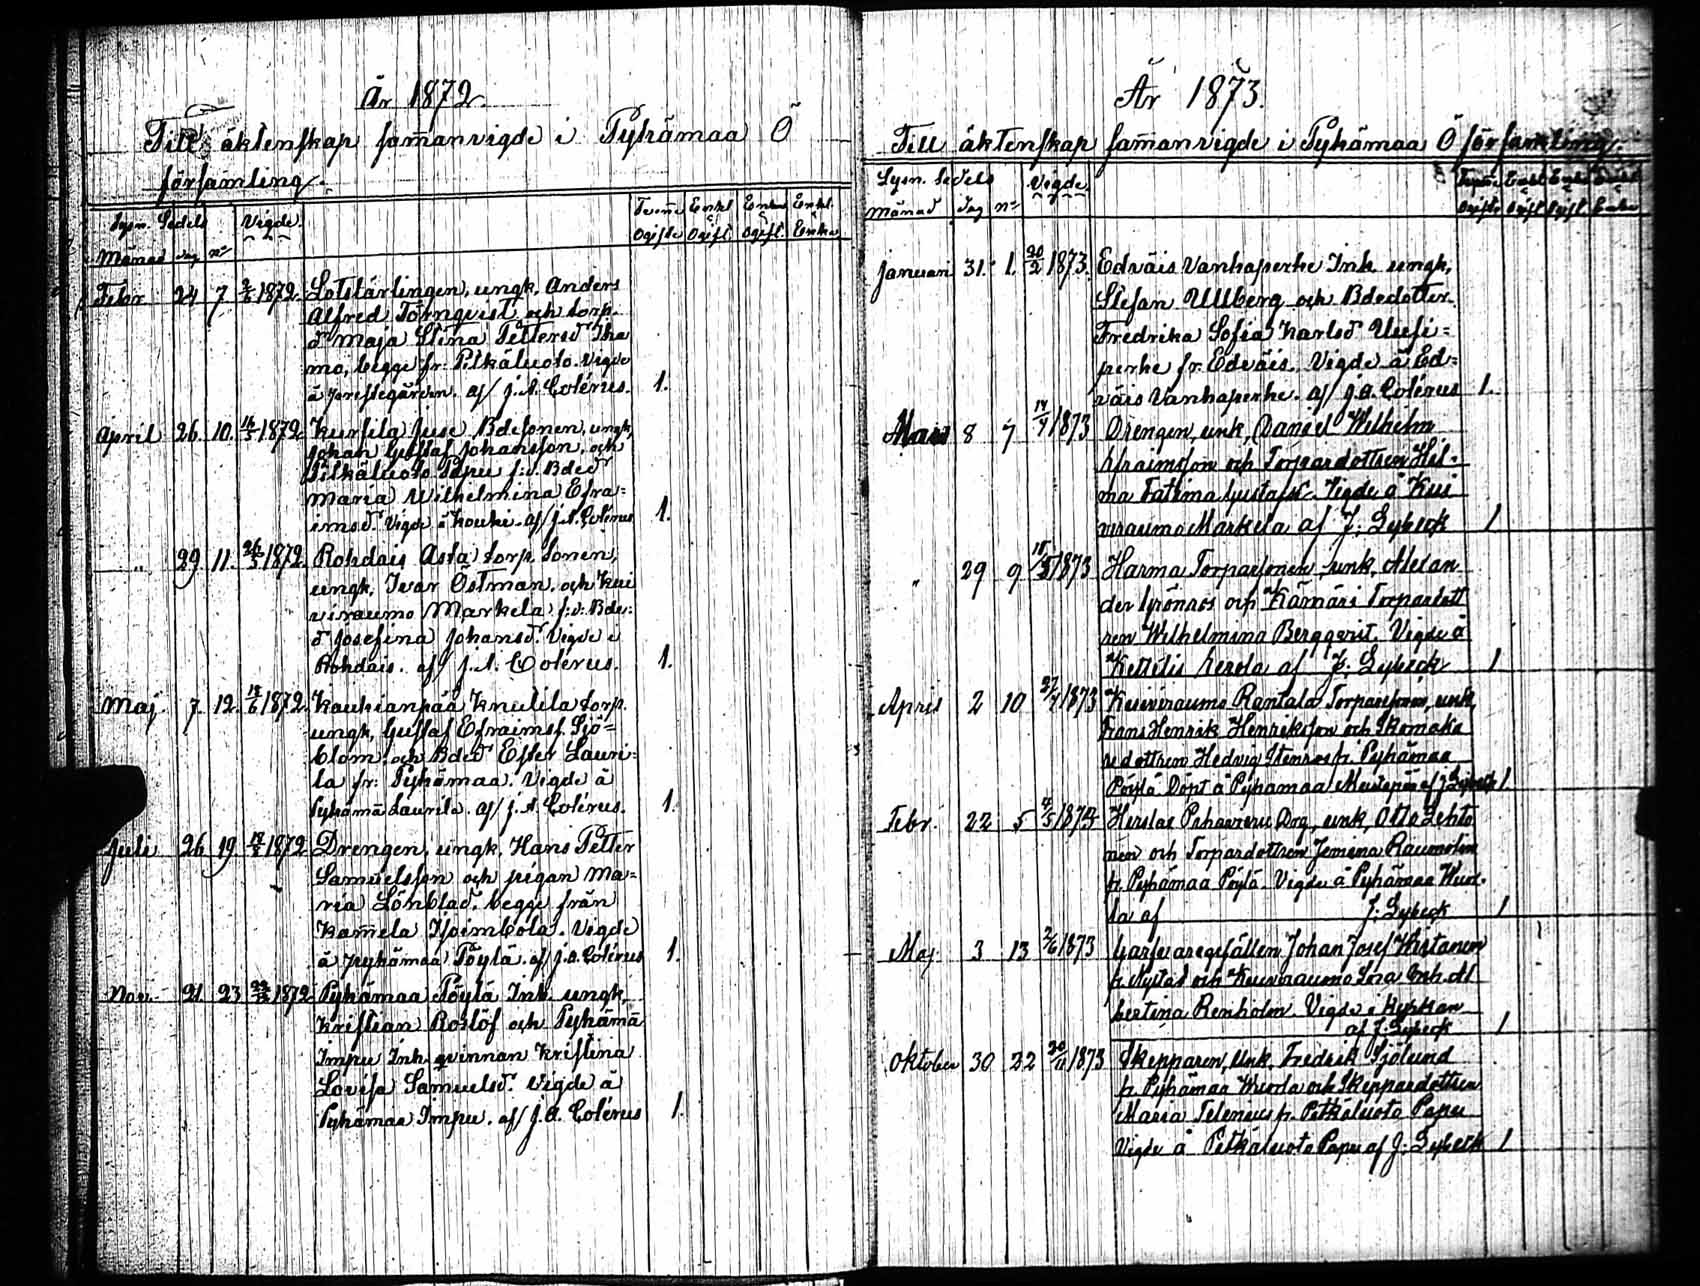 År 1872.
Till äktenskap sam̄anvigde i Pyhämaa Ö
församling.
Lysn. Sedels Vigde.
Månad dag no
Tvenne Ogifte
Enkl. o Ogift.
Enka o Ogift.
Enkl. o Enka
Febr 24 7 1872 Lotslärlingen, ungk, Anders
Alfred Törnqvist och torp.
d Maja Stina Pettersd
mo, begge fr. Pitkäluoto. Vigde
å prestegården. af J. A. Colérus. 1.
April 26. 10. 16/5 1872. Kursila Juse Bdesonen, ungk,
Johan Gustaf Johansson, och
Pitkäluoto Papu f.d. Bded
Maria Wilhelmina Efra=
imsd. Vigde å Kouki. af J. A. Colérus 1.
" 29 11. 26/5 1872. Rohdais Asta torp. sonen,
ungk, Ivar Östman, och Kui
viraumo Markela f.d. Bde=
d Josefina Johansd. Vigde i
Rohdais. af J. A. Colérus. 1.
Maj. 7. 12. 18/6 1872. Kaukianpää Knutila torp.
ungk, Gustaf Efraimsf. Sjö=
blom, och Bded Ester Lauri=
la fr. Pyhämaa. Vigde å
Pyhämä Laurila. af J. A. Colérus. 1.
Juli 26 19. 1872 Drengen, ungk, Hans Petter
Samuelsson och pigan Ma=
ria Lönblad. begge från
Kamela. Vigde
å Pyhämaa Pöylä. af J. A. Colérus 1.
Nov. 21. 23 1872. Pyhämaa Pöylä Inh. ungk,
Kristian Roslöf och Pyhämä
Impu Inh. qvinnan Kristina
Lovisa Samuelsd. Vigde å
Pyhämaa Impu. af J. A. Colérus 1.
År 1873.
Till äktenskap sam̄anvigde i Pyhämaa Ö församling.
Lysn. Sedels Vigde
Månad dag no
Januari 31. 1. 20/2 1873. Edväis Vanhaperhe Inh. ungk,
Stefan Ullberg och Bdedotter.
Fredrika Sofia Karlsd Uusi=
perhe fr. Edväis. Vigde å Ed=
väis Vanhaperhe. af J. A. Colérus 1.
Mars 8 7 14/4 1873 Drengen, unk, Daniel Wilhelm
Efraimsson och Torpardottren Hil=
ma Fatima Gustafsd. Vigde å Kui
viraumo Markela af J. Lybeck 1
" 29 9 1873 Harma Torparsonen, unk, Alexan
der Grönros och Kämäri Torpardott
ren Wilhelmina Bergqvist. Vigde å
af J. Lybeck 1
April 2 10 27/4 1873 Kuiviraumo Rantala Torparsonen, unk,
Frans Henrik Henriksson och Skomaka
redottren Hedvig Stenros fr. Pyhämaa
Pöylä å Pyhämaa af J. Lybeck 1.
Febr. 22 5 1873 unk, Otto Lehto
nen och Torpardottren Raumolin
fr. Pyhämaa Pöylä. Vigde å Pyhämaa Wuor=
la af J. Lybeck 1
Maj 3 13 2/6 1873 Garfvaregesällen Johan Josef
fr. Nystad och Kuiviraumo Inh. Al
bertina Renholm. Vigde i Kyrkan
af J. Lybeck 1
Oktober 30 22 20/11 1873 Skepparen, unk, Fredrik Sjölund
fr. Pyhämaa Wuorla och Skeppardottren
Maria Telenius fr. Pitkäluoto Papu
Vigde å Pitkäluoto Papu af J. Lybeck 1